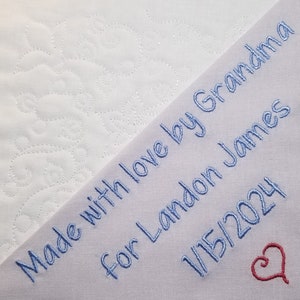 Made with love by Grandma
for Landon James
1/15/2024